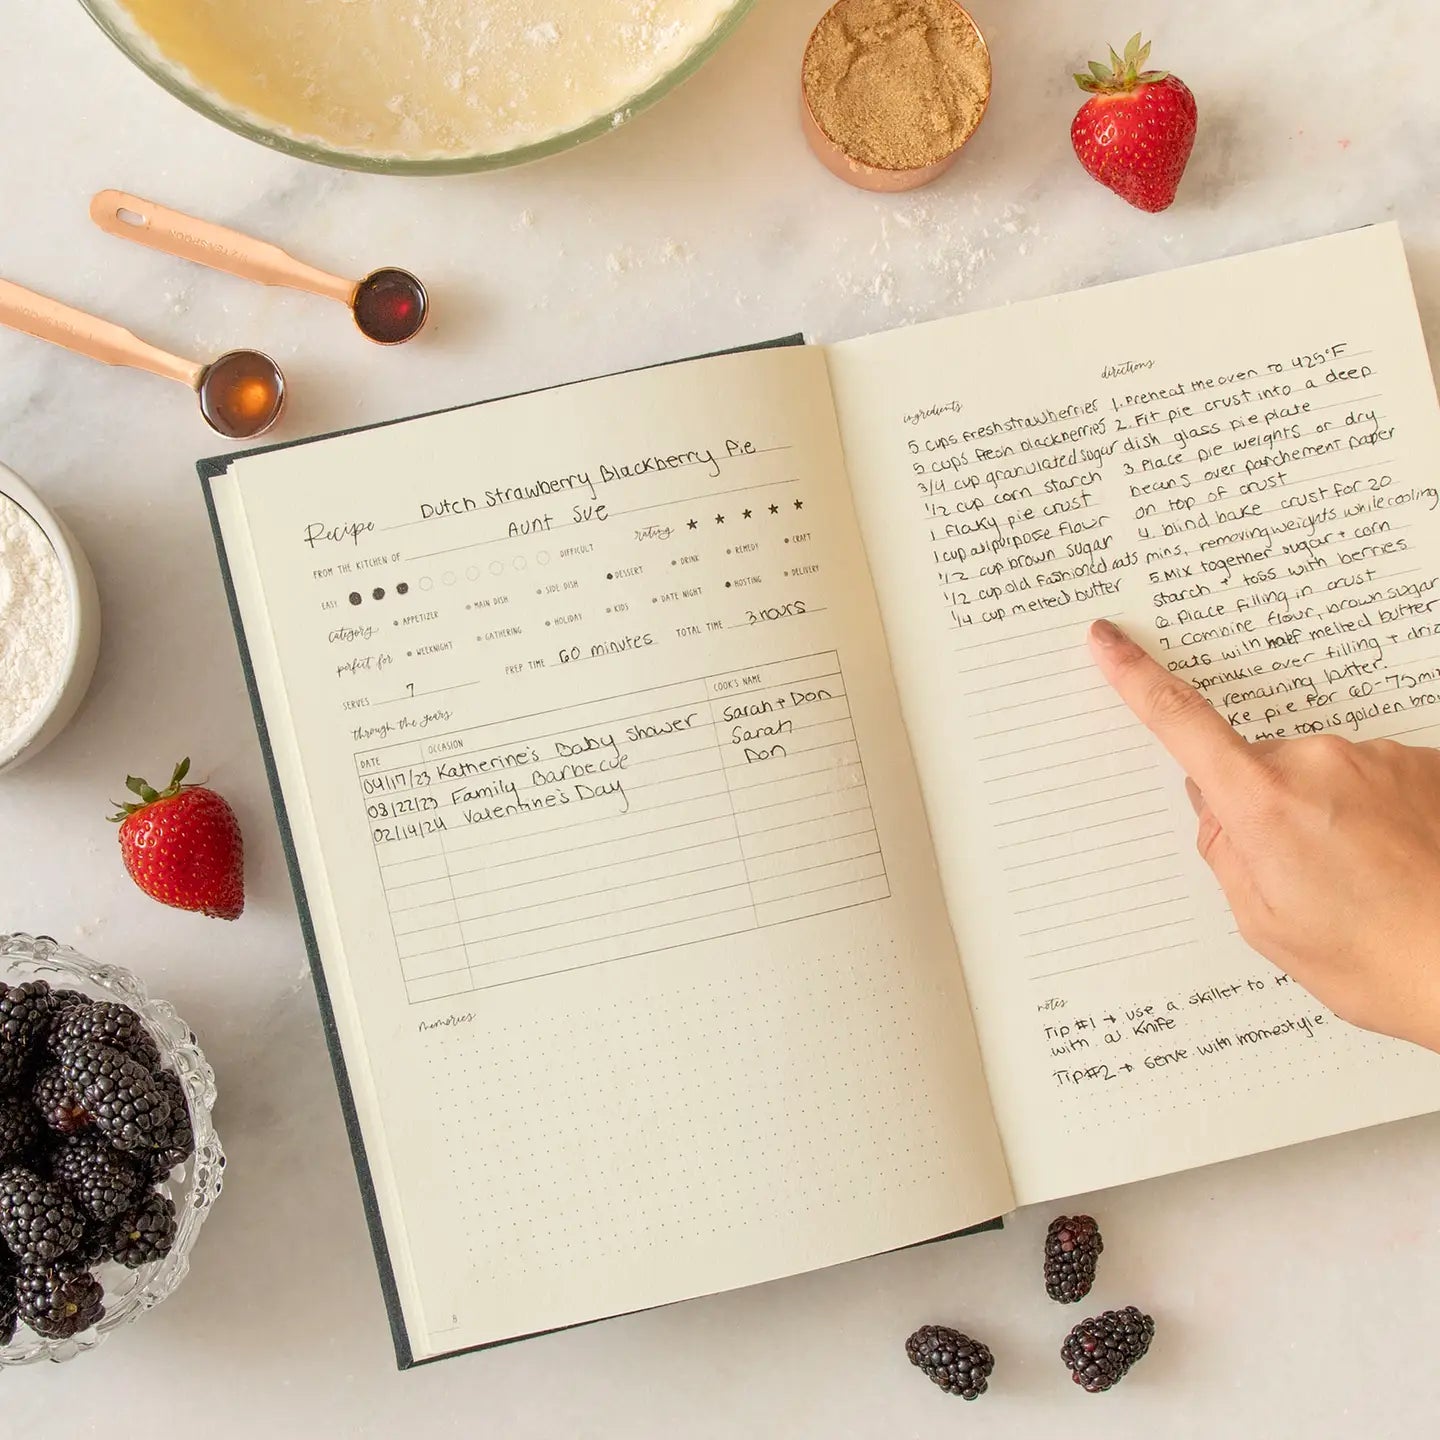 Recipe Dutch Strawberry Blackberry Pie
FROM THE KITCHEN OF Aunt Sue
rating ★ ★ ★ ★ ★
EASY DIFFICULT
category APPETIZER MAIN DISH SIDE DISH DESSERT DRINK REMEDY CRAFT
perfect for WEEKNIGHT GATHERING HOLIDAY KIDS DATE NIGHT HOSTING DELIVERY
SERVES 7 PREP TIME 60 minutes TOTAL TIME 3 hours
through the years
DATE OCCASION COOK'S NAME
04/17/23 Katherine's Baby Shower Sarah + Don
08/22/23 Family Barbecue Sarah
02/14/24 Valentine's Day Don
memories
8
ingredients
5 cups fresh strawberries
5 cups fresh blackberries
3/4 cup granulated sugar
1/2 cup corn starch
1 flaky pie crust
1 cup allpurpose flour
1/2 cup brown sugar
1/2 cup old fashioned oats
1/4 cup melted butter
directions
1. Preheat the oven to 425°F
2. Fit pie crust into a deep
dish glass pie plate
3 Place pie weights or dry
beans over parchement paper
on top of crust
4. blind bake crust for 20
mins, removing weights while cooling
5. Mix together sugar + corn
starch + toss with berries
6. Place filling in crust
7 Combine flour, brown sugar
oats with half melted butter
sprinkle over filling +
remaining butter.
pie for 60-75 min
the top is golden
notes
Tip #1 → use a skillet to
with a knife
Tip #2 → serve with homestyle